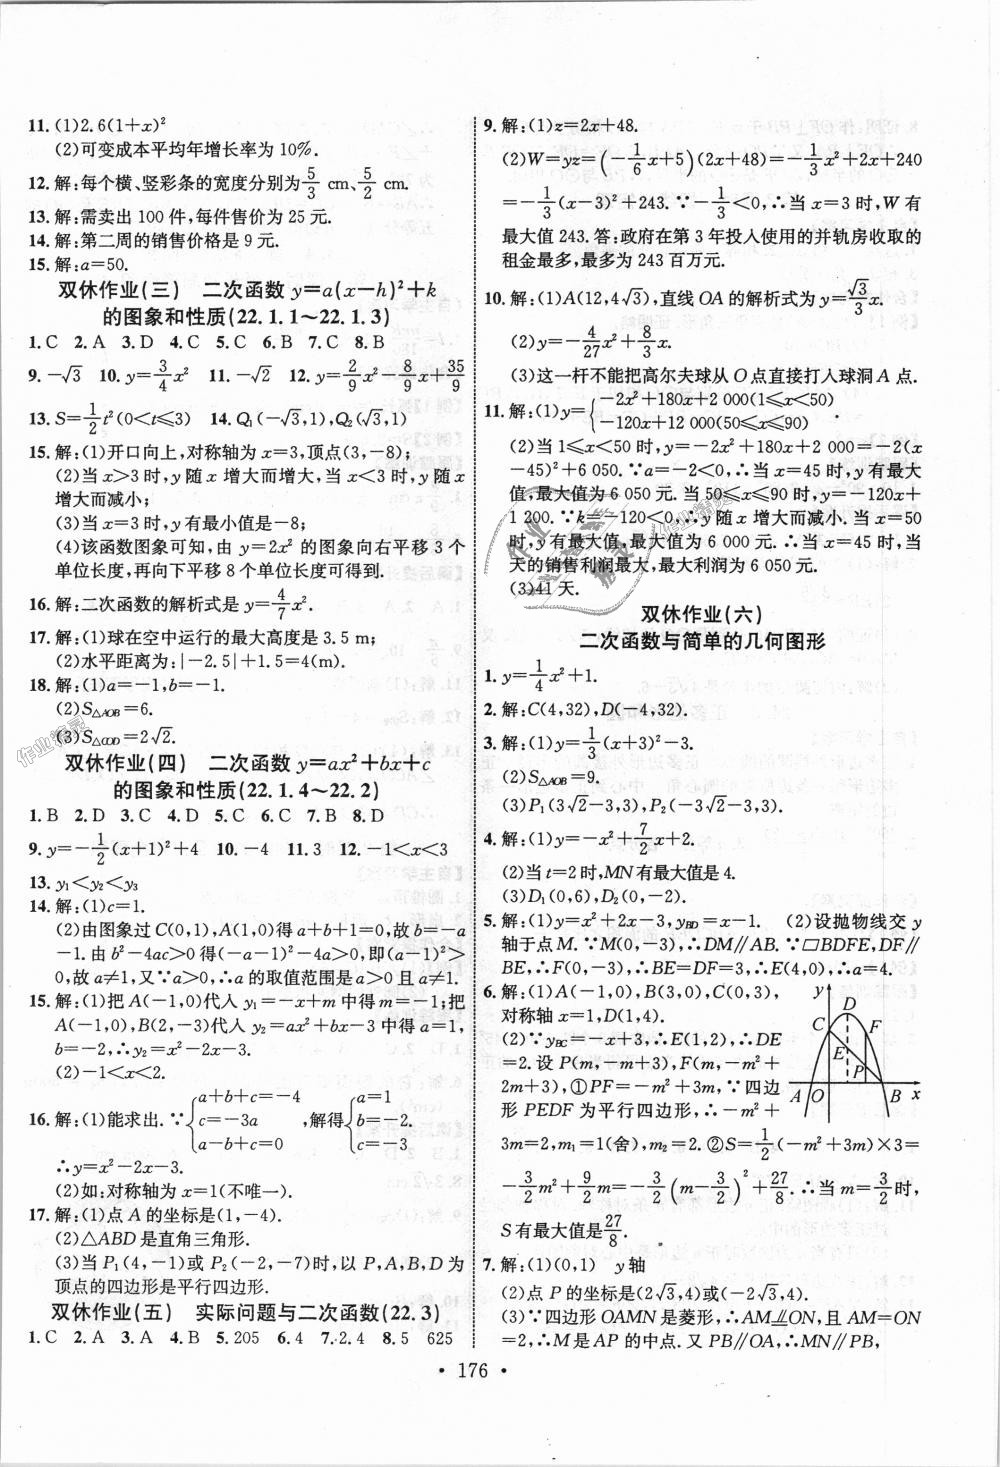 11. (1)2.6(1+x)²
(2)可变成本平均年增长率为10%.
12. 解:每个横、竖彩条的宽度分别为5/3 cm、5/2 cm.
13. 解:需卖出 100 件,每件售价为 25 元.
14. 解:第二周的销售价格是 9 元.
15. 解:a=50.
双休作业(三) 二次函数 y=a(x-h)²+k
的图象和性质(22.1.1~22.1.3)
1. C 2. A 3. D 4. C 5. C 6. B 7. C 8. B
9. -√3 10. y=3/4x² 11. -√2 12. y=2/9x²-8/9x+35/9
13. S=1/2t²(0<t≤3) 14. Q₁(-√3,1),Q₂(√3,1)
15. 解:(1)开口向上,对称轴为 x=3,顶点(3,-8);
(2)当 x>3 时,y 随 x 增大而增大,当 x<3 时,y 随 x
增大而减小;
(3)当 x=3 时,y 有最小值是-8;
(4)该函数图象可知,由 y=2x² 的图象向右平移 3 个
单位长度,再向下平移 8 个单位长度可得到.
16. 解:二次函数的解析式是 y=4/7x².
17. 解:(1)球在空中运行的最大高度是 3.5 m;
(2)水平距离为:|-2.5|+1.5=4(m).
18. 解:(1)a=-1,b=-1.
(2)S△AOB=6.
(3)S△COD=2√2.
双休作业(四) 二次函数 y=ax²+bx+c
的图象和性质(22.1.4~22.2)
1. B 2. D 3. C 4. D 5. C 6. C 7. B 8. D
9. y=-1/2(x+1)²+4 10. -4 11. 3 12. -1<x<3
13. y₁<y₂<y₃
14. 解:(1)c=1.
(2)由图象过 C(0,1),A(1,0)得 a+b+1=0,故 b=-a
-1.由 b²-4ac>0 得(-a-1)²-4a>0,即(a-1)²>
0,故 a≠1,又∵a>0,∴a 的取值范围是 a>0 且 a≠1.
15. 解:(1)把 A(-1,0)代人 y₁=-x+m 中得 m=-1;把
A(-1,0),B(2,-3)代人 y₂=ax²+bx-3 中得 a=1,
b=-2,∴y₂=x²-2x-3.
(2)-1<x<2.
16. 解:(1)能求出.∵{a+b+c=-4 c=-3a a-b+c=0 解得{a=1 b=-2 c=-3.
∴y=x²-2x-3.
(2)如:对称轴为 x=1(不唯一).
17. 解:(1)点 A 的坐标是(1,-4).
(2)△ABD 是直角三角形.
(3)当 P₁(4,-1)或 P₂(-2,-7)时,以 P,A,B,D 为
顶点的四边形是平行四边形.
双休作业(五) 实际问题与二次函数(22.3)
1. C 2. A 3. A 4. B 5. 205 6. 4 7. 2.4 8. 5 625
9. 解:(1)z=2x+48.
(2)W=yz=(-1/6x+5)(2x+48)=-1/3x²+2x+240
=-1/3(x-3)²+243.∵-1/3<0,∴当 x=3 时,W 有
最大值 243.答:政府在第 3 年投人使用的并轨房收取的
租金最多,最多为 243 百万元.
10. 解:(1)A(12,4√3),直线 OA 的解析式为 y=√3/3x.
(2)y=-4/27x²+8/3x.
(3)这一杆不能把高尔夫球从 O 点直接打人球洞 A 点.
11. 解:(1)y={-2x²+180x+2 000(1≤x<50)
-120x+12 000(50≤x≤90)
(2)当 1≤x<50 时,y=-2x²+180x+2000=-2(x
-45)²+6 050.∵a=-2<0,∴当 x=45 时,y 有最大
值,最大值为 6 050 元.当 50≤x≤90 时,y=-120x+
1 200.∵k=-120<0,∴y 随 x 增大而减小.当 x=50
时,y 有最大值,最大值为 6 000 元.∴当 x=45 时,当
天的销售利润最大,最大利润为 6 050 元.
(3)41 天.
双休作业(六)
二次函数与简单的几何图形
1. y=1/4x²+1.
2. 解:C(4,32),D(-4,32).
3. 解:(1)y=1/3(x+3)²-3.
(2)S△AOB=9.
(3)P₁(3√2-3,3),P₂(-3√2-3,3).
4. 解:(1)y=-x²+7/2x+2.
(2)当 t=2 时,MN 有最大值是 4.
(3)D₁(0,6),D₂(0,-2).
5. 解:(1)y=x²+2x-3,yBD=x-1. (2)设抛物线交 y
轴于点 M.∵M(0,-3),∴DM∥AB.∵▱BDFE,DF∥
BE,∴F(0,-3),∴BE=DF=3,∴E(4,0),∴a=4.
6. 解:(1)A(-1,0),B(3,0),C(0,3),
对称轴 x=1,D(1,4).
(2)∵yBC=-x+3,∴E(1,2),∴DE
=2.设 P(m,-m+3),F(m,-m²+
2m+3),①PF=-m²+3m,∵四边
形 PEDF 为平行四边形,∴-m²+
3m=2,m₁=1(舍),m=2.②S=1/2(-m²+3m)×3=
-3/2m²+9/2m=-3/2(m-3/2)²+27/8.∴当 m=3/2时,
S 有最大值是27/8.
y
D
C
F
E
P
A O B x
7. 解:(1)(0,1) y 轴
(2)点 P 的坐标是(2√3,4)或(-2√3,4).
(3)∵四边形 OAMN 是菱形,∴AM⫽ON,且 AM=ON
=2,∴M 是 AP 的中点.又 PB∥OA,∴MN∥PB,
· 176 ·
作业精灵